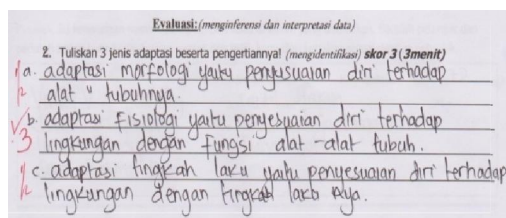 Evaluasi: (menginferensi dan interpretasi data)
2. Tuliskan 3 jenis adaptasi beserta pengertiannya! (mengidentifikasi) skor 3 (3menit)
a. adaptasi morfologi yaitu penyusuaian diri terhadap
alat " tubuhnya.
b. adaptasi Fisiologi yaitu penyesuaian diri terhadap
3 lingkungan dengan fungsi alat-alat tubuh.
c. adaptasi tingkah laku yaitu penyesuaian diri terhadap
lingkungan dengan tingkah laku nya.